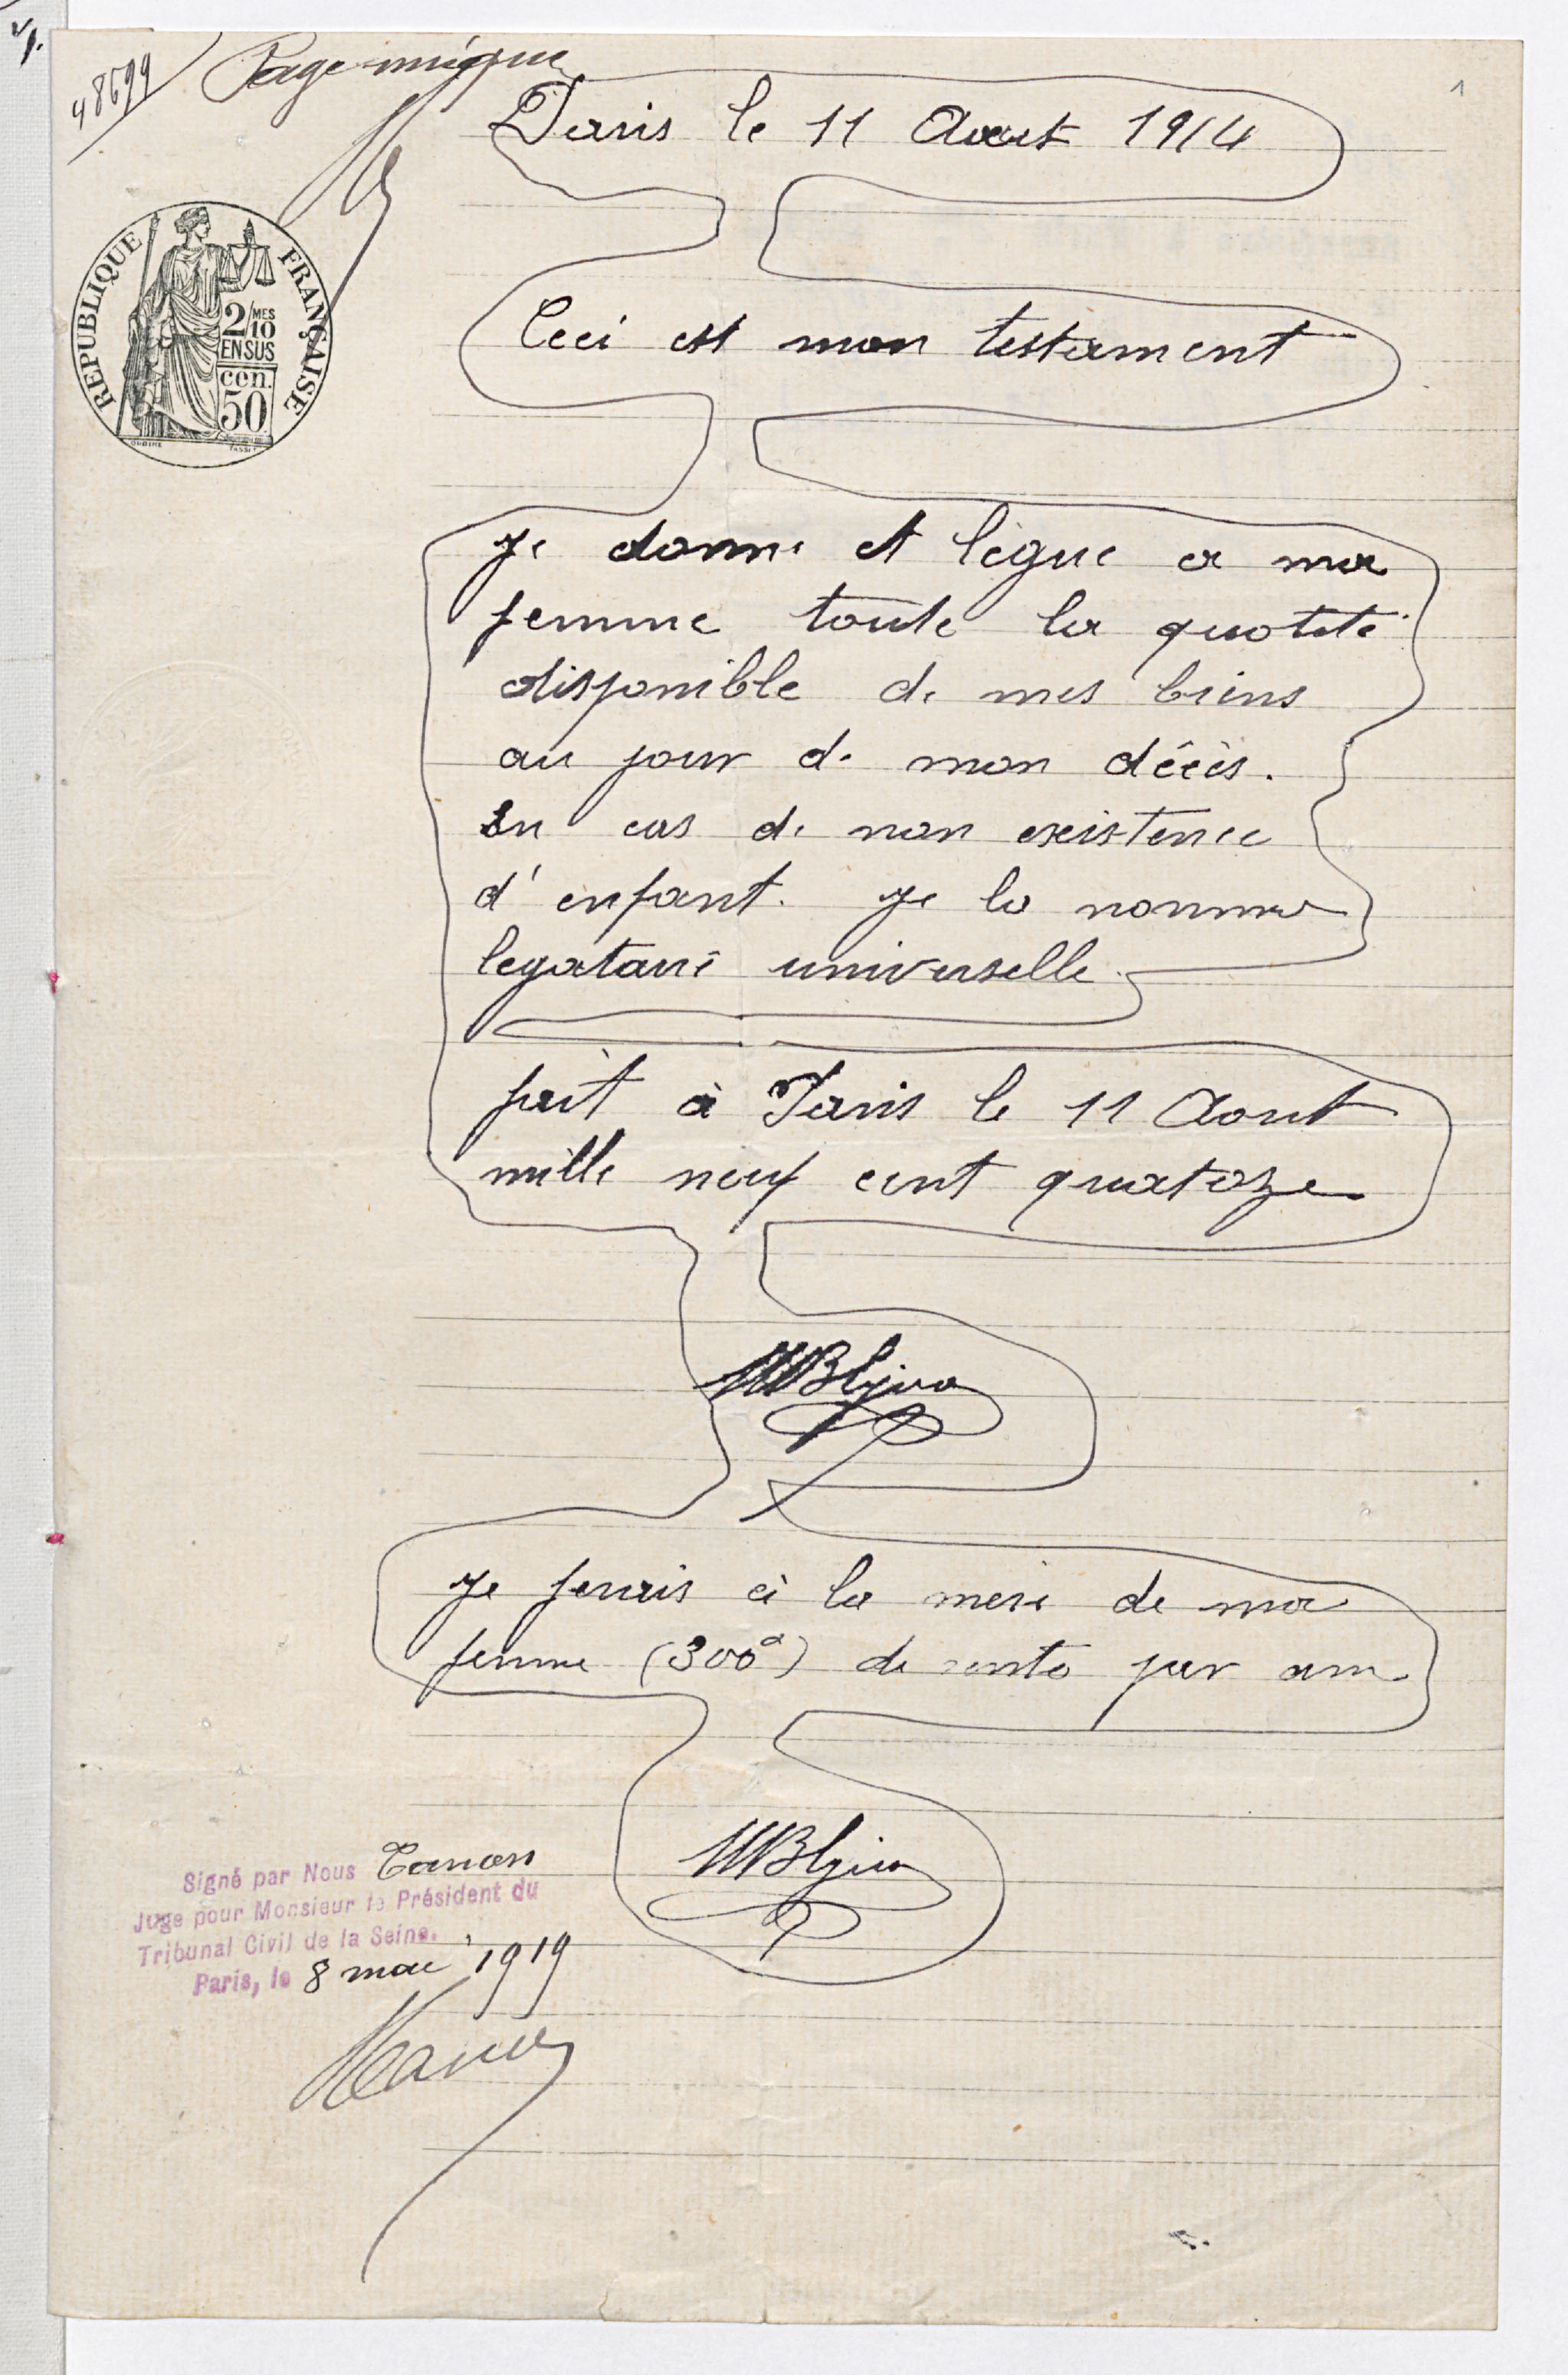 48699
Page unique
1
Paris le 11 Aout 1914
REPUBLIQUE FRANÇAISE
2/10 MES
EN SUS
cen.
50
OUDINÉ
TASSET
Ceci est mon testament
Je donne et lègue a ma
femme toute la quotité
disponible de mes biens
au jour de mon décès.
En cas de non existence
d'enfant. je la nomme
legataire universelle.
fait à Paris le 11 Aout
mille neuf cent quatoze
Je ferais à la mere de ma
femme (300) de rente par an
Signé par Nous
Juge pour Monsieur le Président du
Tribunal Civil de la Seine.
Paris, le 8 mai 1919